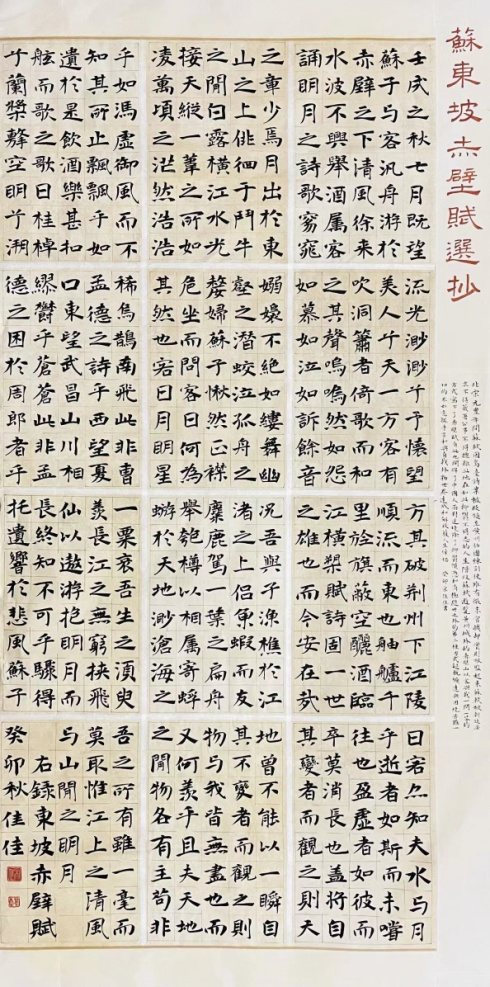 蘇東坡赤壁賦選抄
壬戌之秋七月既望
蘇子与客汎舟游於
赤壁之下清風徐来
水波不興舉酒属客
誦明月之詩歌窈窕
之章少焉月出於東
山之上徘徊于鬥牛
之間白露橫江水光
接天縱一葦之所如
凌萬頃之茫然浩浩
乎如馮虛御風而不
知其所止飄飄乎如
遺於是飲酒樂甚扣
舷而歌之歌曰桂棹
兮蘭槳擊空明兮溯
流光渺渺兮予懷望
美人兮天一方客有
吹洞簫者倚歌而和
之其聲嗚嗚然如怨
如慕如泣如訴餘音
嫋嫋不絕如縷舞幽
壑之潛蛟泣孤舟之
嫠婦蘇子愀然正襟
危坐而問客曰何
其然也客曰月明星
稀烏鵲南飛此非曹
孟德之詩乎西望夏
口東望武昌山川相
繆鬱乎蒼蒼此非孟
德之困於周郎者乎
方其破荆州下江陵
順流而東也舳艫千
里旌旗蔽空釃酒臨
江橫槊賦詩固一世
之雄也而今安在哉
況吾與子漁樵於江
渚之上侶魚蝦而友
麋鹿駕一葉之扁舟
舉匏樽以相属寄蜉
蝣於天地渺滄海之
一粟哀吾生之須臾
羨長江之無窮挾飛
仙以遨游抱明月而
長終知不可乎驟得
托遺響於悲風蘇子
曰客亦知夫水与月
乎逝者如斯而未嘗
往也盈虛者如彼而
卒莫消長也盖將自
其變者而觀之則天
地曾不能以一瞬自
其不變者而觀之則
物与我皆無盡也而
又何羨乎且夫天地
之間物各有主苟非
吾之所有雖一毫而
莫取惟江上之清風
与山間之明月
右録東坡赤壁賦
癸卯秋佳佳